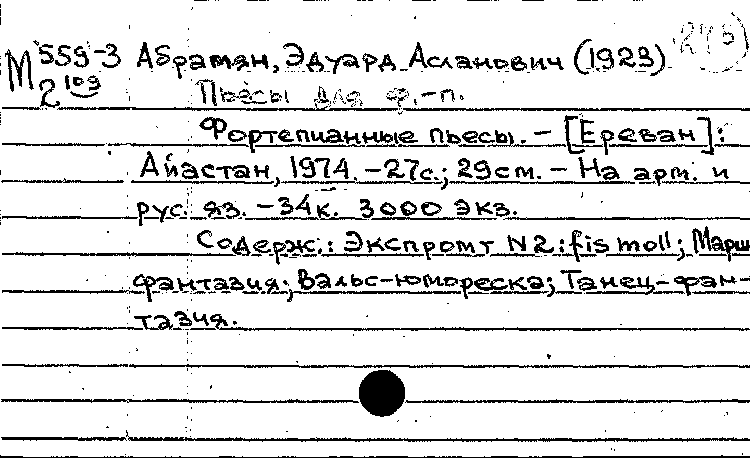 М 559-3 Абрамян, Эдуард Асланович (1923)
2 109 Пьесы для ф.-п.
Фортепианные пьесы. - [Ереван]:
Айастан, 1974. - 27с.; 29см. - На арм. и
рус. яз. - 34к. 3000 экз.
Содерж.: Экспромт N2: fis moll; Марш
фантазия; Вальс-юмореска; Танец-фан-
тазия.